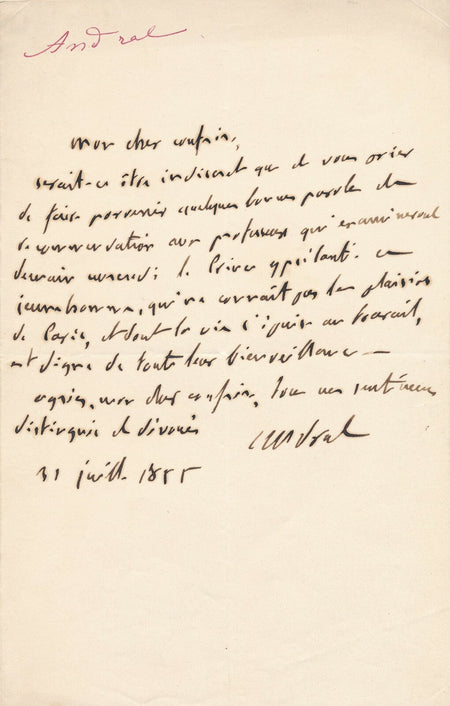 Andral
mon cher confrère,
serait-ce être indiscret que de vous prier
de faire parvenir quelques bonnes paroles de
recommandation aux professeurs qui examineront
demain mercredi le Prince ypsilanti. ce
jeune homme, qui ne connaît pas les plaisirs
de Paris, et dont la vie s'épuise au travail,
est digne de toute leur bienveillance —
agréez, mon cher confrère, tous mes sentiments
distingués et dévoués
Andral
31 juill. 1855